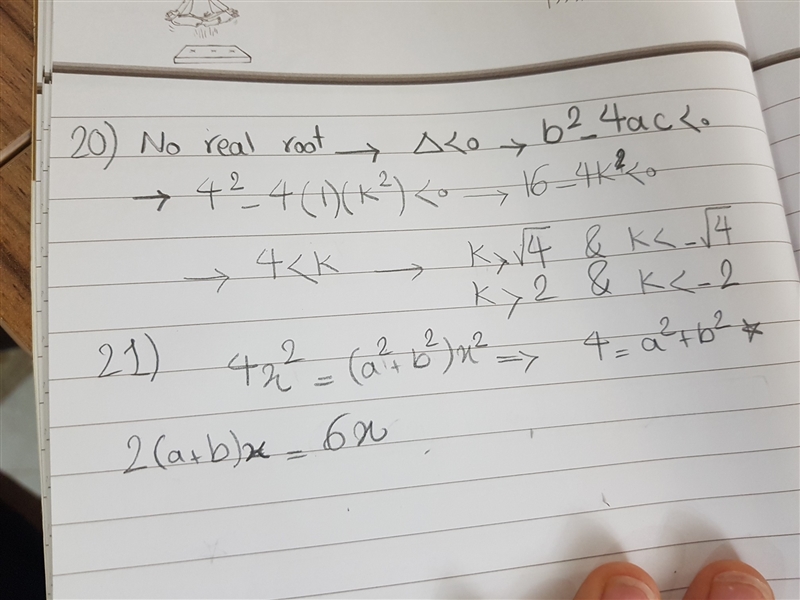 20) No real root → Δ<0 → b²-4ac<0
→ 4²-4(1)(k²)<0 → 16-4k²<0
→ 4<k → k>√4 & k<-√4
k>2 & k<-2
21) 4x²=(a²+b²)x² ⇒ 4=a²+b² *
2(a+b)x = 6x